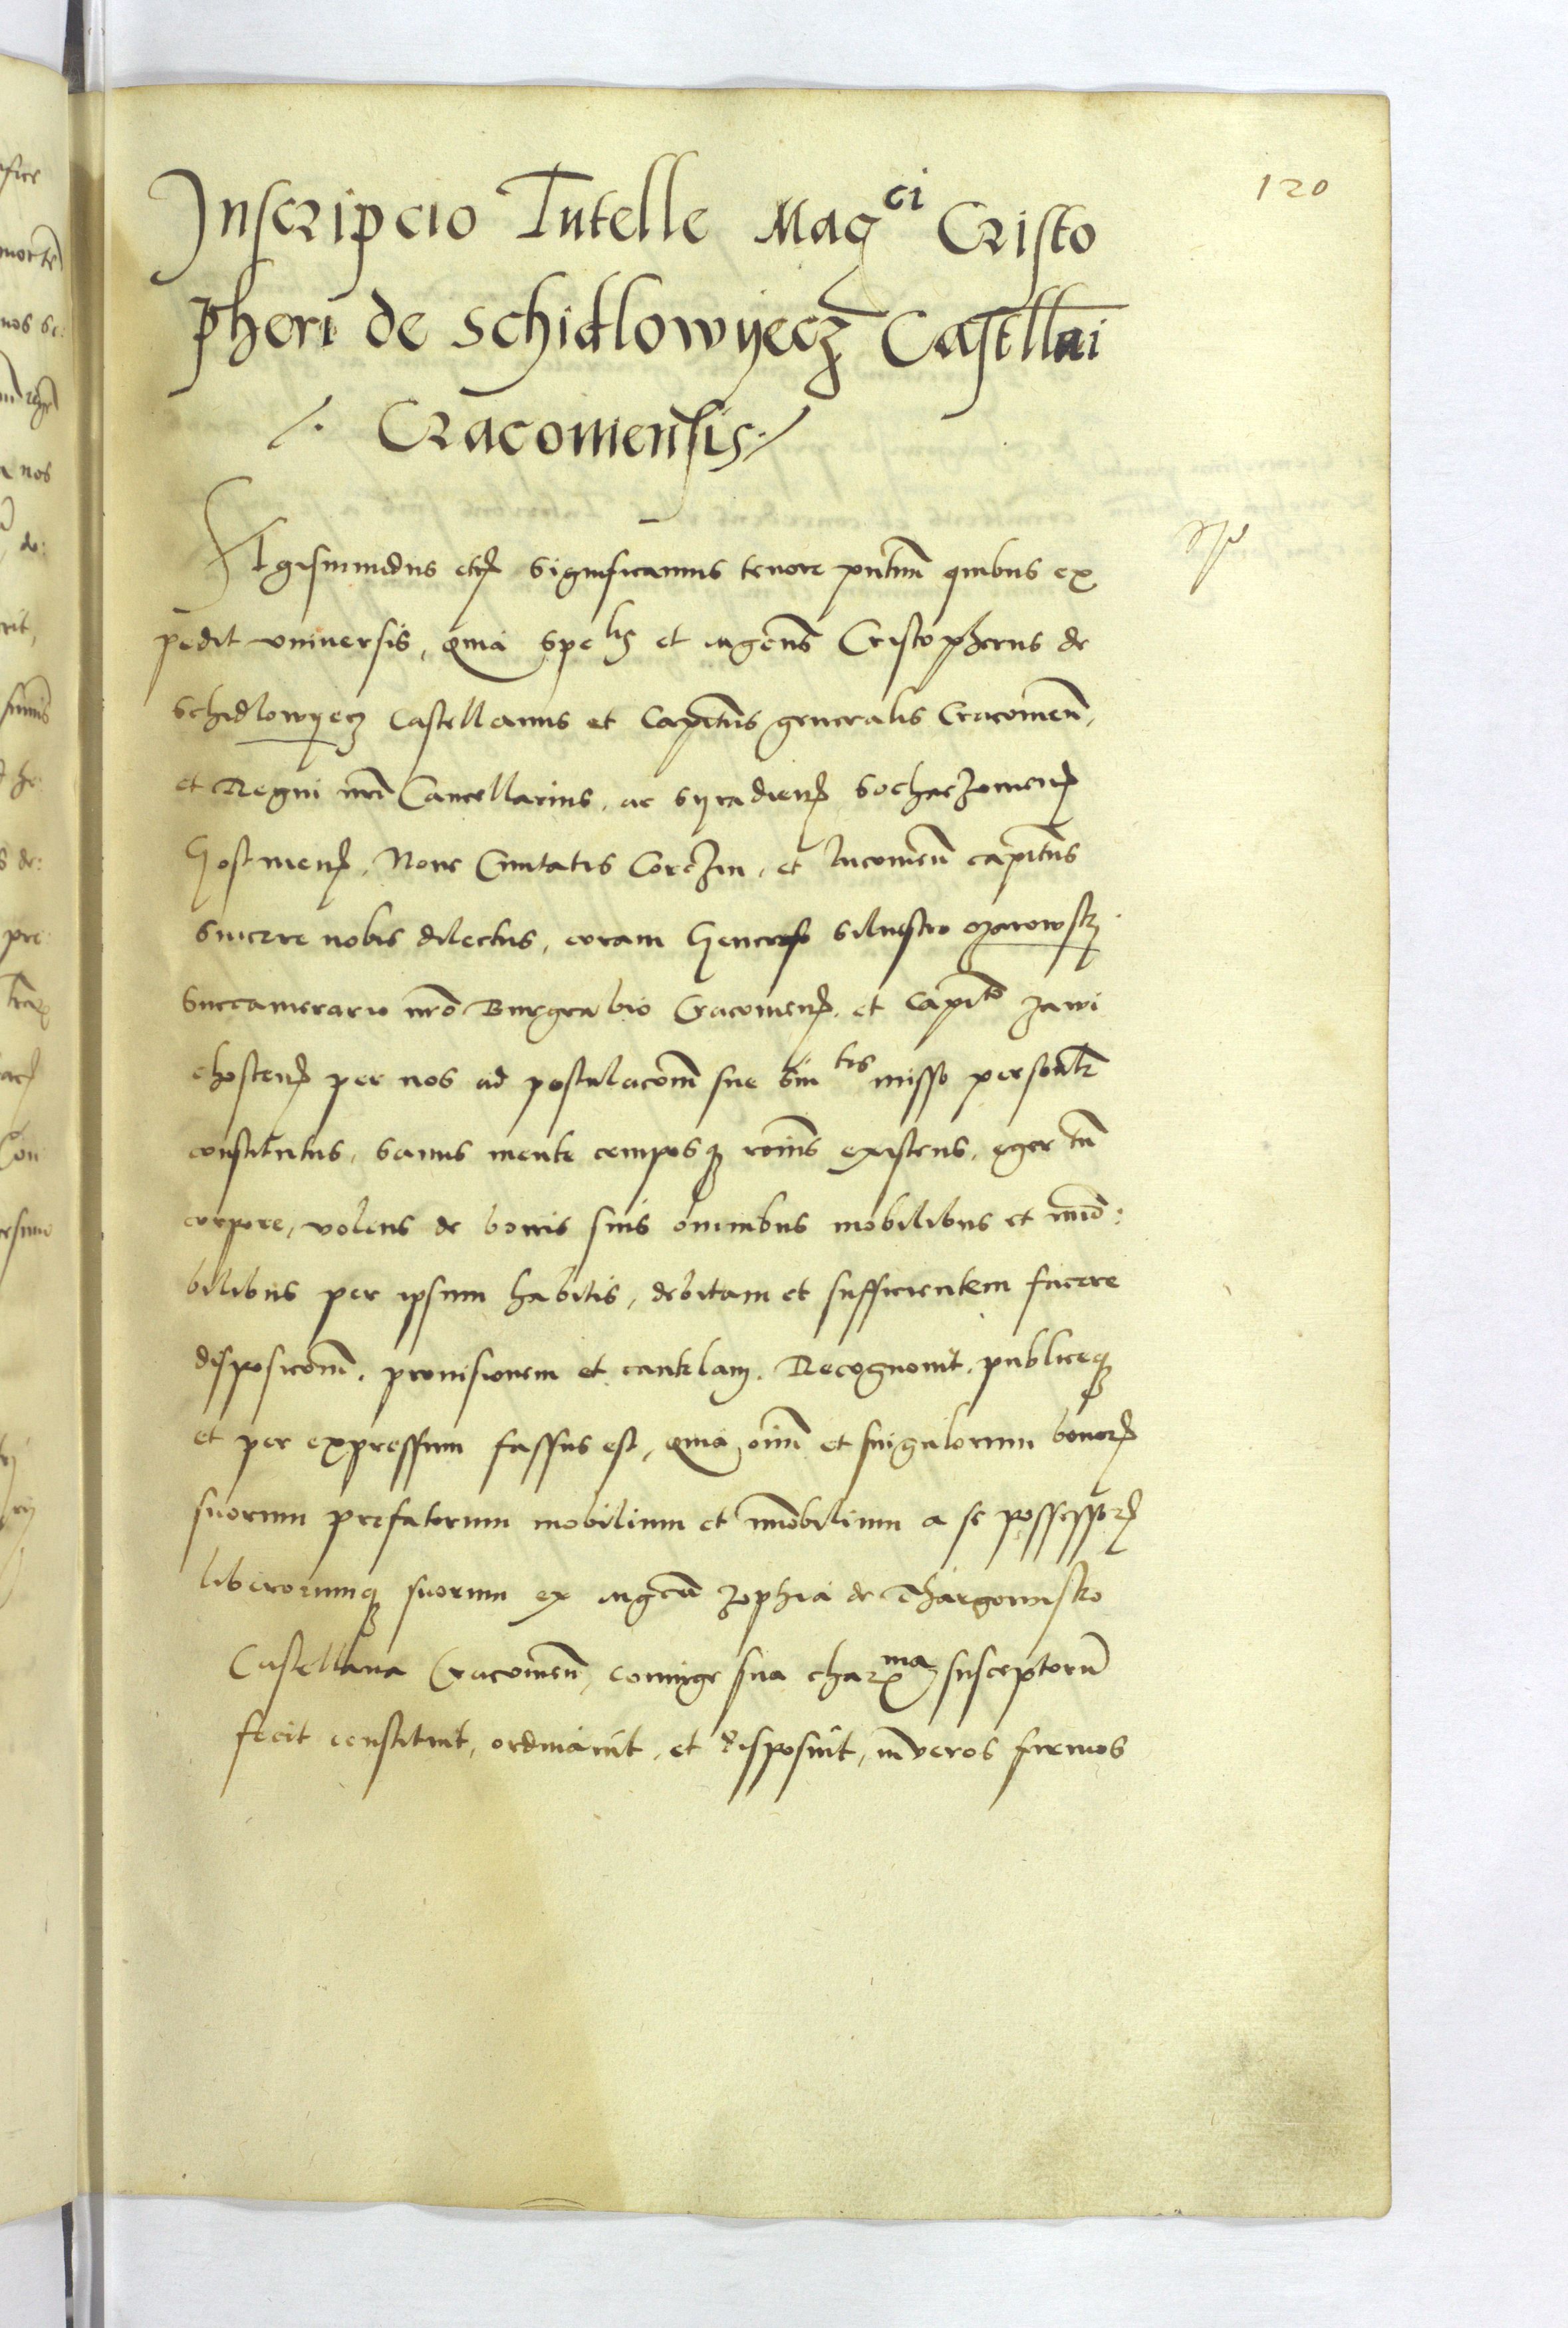 120
Inscripcio Tutelle Mag^ci Cristo
pheri de Schidlowyecz Castellāi
/. Cracoviensis ./
Sigismundus etc̄ Significamus tenore pn̄tium quibus ex
pedit vniuersis, Quia Spe^lis et mag^cus Cristopherus de
Schidlowyecz Castellanus et Capitn̄s generalis Cracouien̄,
et Regni nr̄i Cancellarius, ac Syradien̄ Sochaczouien̄
Gostinien̄, Noue Ciuitatis Corczin, et Lucouien̄ capitn̄s
Sincere nobis dilectus, coram Generoso Siluestro Ozarowsky
Succamerario nr̄o Burgrabio Cracouien̄ et Capit^o Zawi
chosten̄ per nos ad postulacōm sue Sin^tis misso personlr̄
constitutus, sanus mente composqꝫ rōnis existens, eger tn̄
corpore, volens de bonis suis om̄nibus mobilibus et im̄mo:
bilibus per ipsum habitis, debitam et sufficientem facere
disposicōm, prouisionem et cautelam, Recognouit, publiceqꝫ
et per expressum fassus est, Quia om̄im et singulorum bonorꝫ
suorum prefatorum mobilium et im̄mobilium a se possessorꝫ
liberorumqꝫ suorum ex mag^ca Zophia de Thargowisko
Castellana Cracouien̄, coniuge sua char^ma susceptorum̄
fecit constituit, ordinauit, et disposuit, in veros firmos